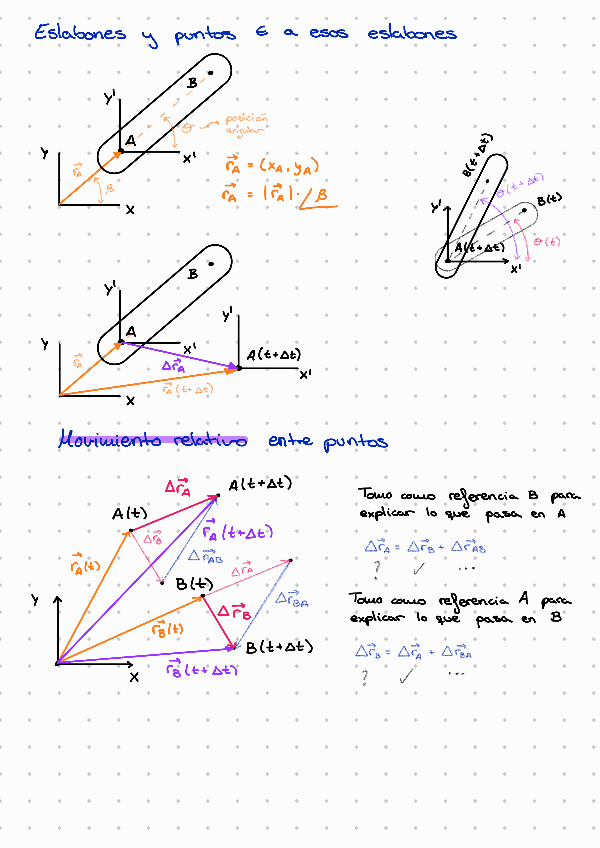 Eslabones y puntos ∈ a esos eslabones
y'
B
A
θ → posición
angular
x'
y
r⃗A
β
x
r⃗A = (xA, yA)
r⃗A = |r⃗A| · ∠β
B(t+Δt)
θ(t+Δt)
B(t)
y'
A(t+Δt)
θ(t)
x'
B
y'
A
y'
y
r⃗A
x'
Δr⃗A
A(t+Δt)
x'
r⃗A(t+Δt)
x
Movimiento relativo entre puntos
Δr⃗A
A(t+Δt)
A(t)
Δr⃗B
r⃗A(t+Δt)
Δr⃗AB
r⃗A(t)
B(t)
Δr⃗A
y
Δr⃗B
Δr⃗BA
r⃗B(t)
B(t+Δt)
x
r⃗B(t+Δt)
Tomo como referencia B para
explicar lo que pasa en A
Δr⃗A = Δr⃗B + Δr⃗AB
? ✓ ...
Tomo como referencia A para
explicar lo que pasa en B
Δr⃗B = Δr⃗A + Δr⃗BA
? ✓ ...